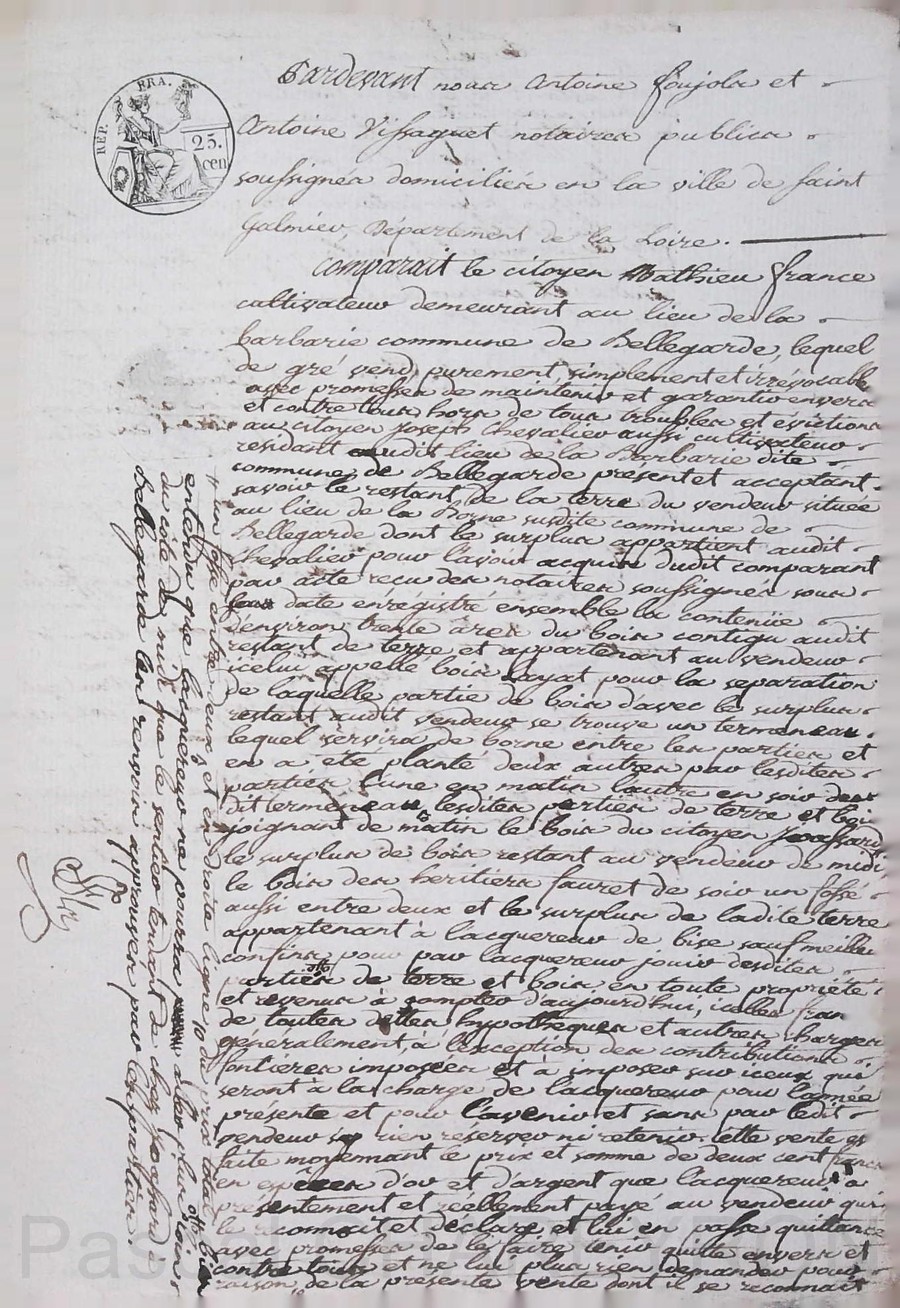 REP. FRA.
25.
cen
Pardevant nous Antoine foujols et
Antoine Vissaguet notaires publics
soussignés domiciliés en la ville de saint
Galmier, Département de la Loire.
comparait le citoyen Mathieu france
cultivateur demeurant au lieu de la
barbarie commune de Bellegarde, lequel
de gré vend purement simplement et irrévocable
avec promesses de maintenir et garantir envers
et contre tous hors de tous troubles et évictions
au citoyen Joseph Chevalier aussi cultivateur
residant audit lieu de la Barbarie dite
commune de Bellegarde présent et acceptant.
savoir le restant de la terre du vendeur située
au lieu de la Borne susdite commune de
Bellegarde dont le surplus appartient audit
Chevalier pour l'avoir acquis dudit comparant
par acte recu des notaires soussignés sous
date enregistré ensemble la contenüe
d'environ trente ares du bois contigu audit
restant de terre et appartenant au vendeur
icelui appellé bois pour la separation
de laquelle partie de bois d'avec le surplus
restant audit vendeur se trouve un termeneau
lequel servira de borne entre les parties et
en a été planté deux autres par lesdites
parties l'une en matin l'autre en soir du
dit termeneau, lesdites parties de terre et bois
joignant de matin le bois du citoyen
le surplus de bois restant au vendeur de midi
le bois des heritiers fauret de soir un fossé
aussi entre deux et le surplus de ladite terre
appartenant à l'acquereur de bise sauf meilleu
confins pour par lacquereur jouir desdites
parties de terre et bois en toute propriété
et revenus à compter d'aujourd'hui, icelles fran
de toutes dettes hypotheques et autres charges
généralement, à l'exception des contributions
fontieres imposées et à imposer sur iceux qui
seront à la charge de l'acquereur pour l'année
présente et pour l'avenir et sans par ledit
vendeur rien réserver ni retenir. cette vente es
faite moyennant le prix et somme de deux cent francs
en espèces d'or et d'argent que lacquereur a
présentement et réellement payé au vendeur qui
le reconnoit et déclare et lui en passe quittance
avec promesses de le faire tenir quitte envers et
contre tous et ne lui plus rien demander pour
raison de la présente vente dont il se reconnait
+ un fossé entre deux et en droite ligne
entendu que lacquereur ne pourra
du côté de midi que le sentier tendant de chez
Bellegarde les renvois approuvés par les parties.